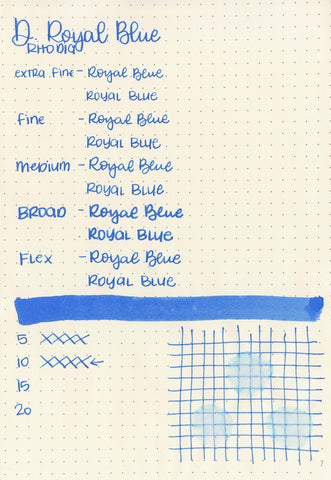 D. Royal Blue
RHODIA
extra fine - Royal Blue
Royal Blue
fine - Royal Blue
Royal Blue
medium - Royal Blue
Royal Blue
BROAD - Royal Blue
Royal Blue
Flex - Royal Blue
Royal Blue
5 XXXX
10 XXXX ←
15
20
7